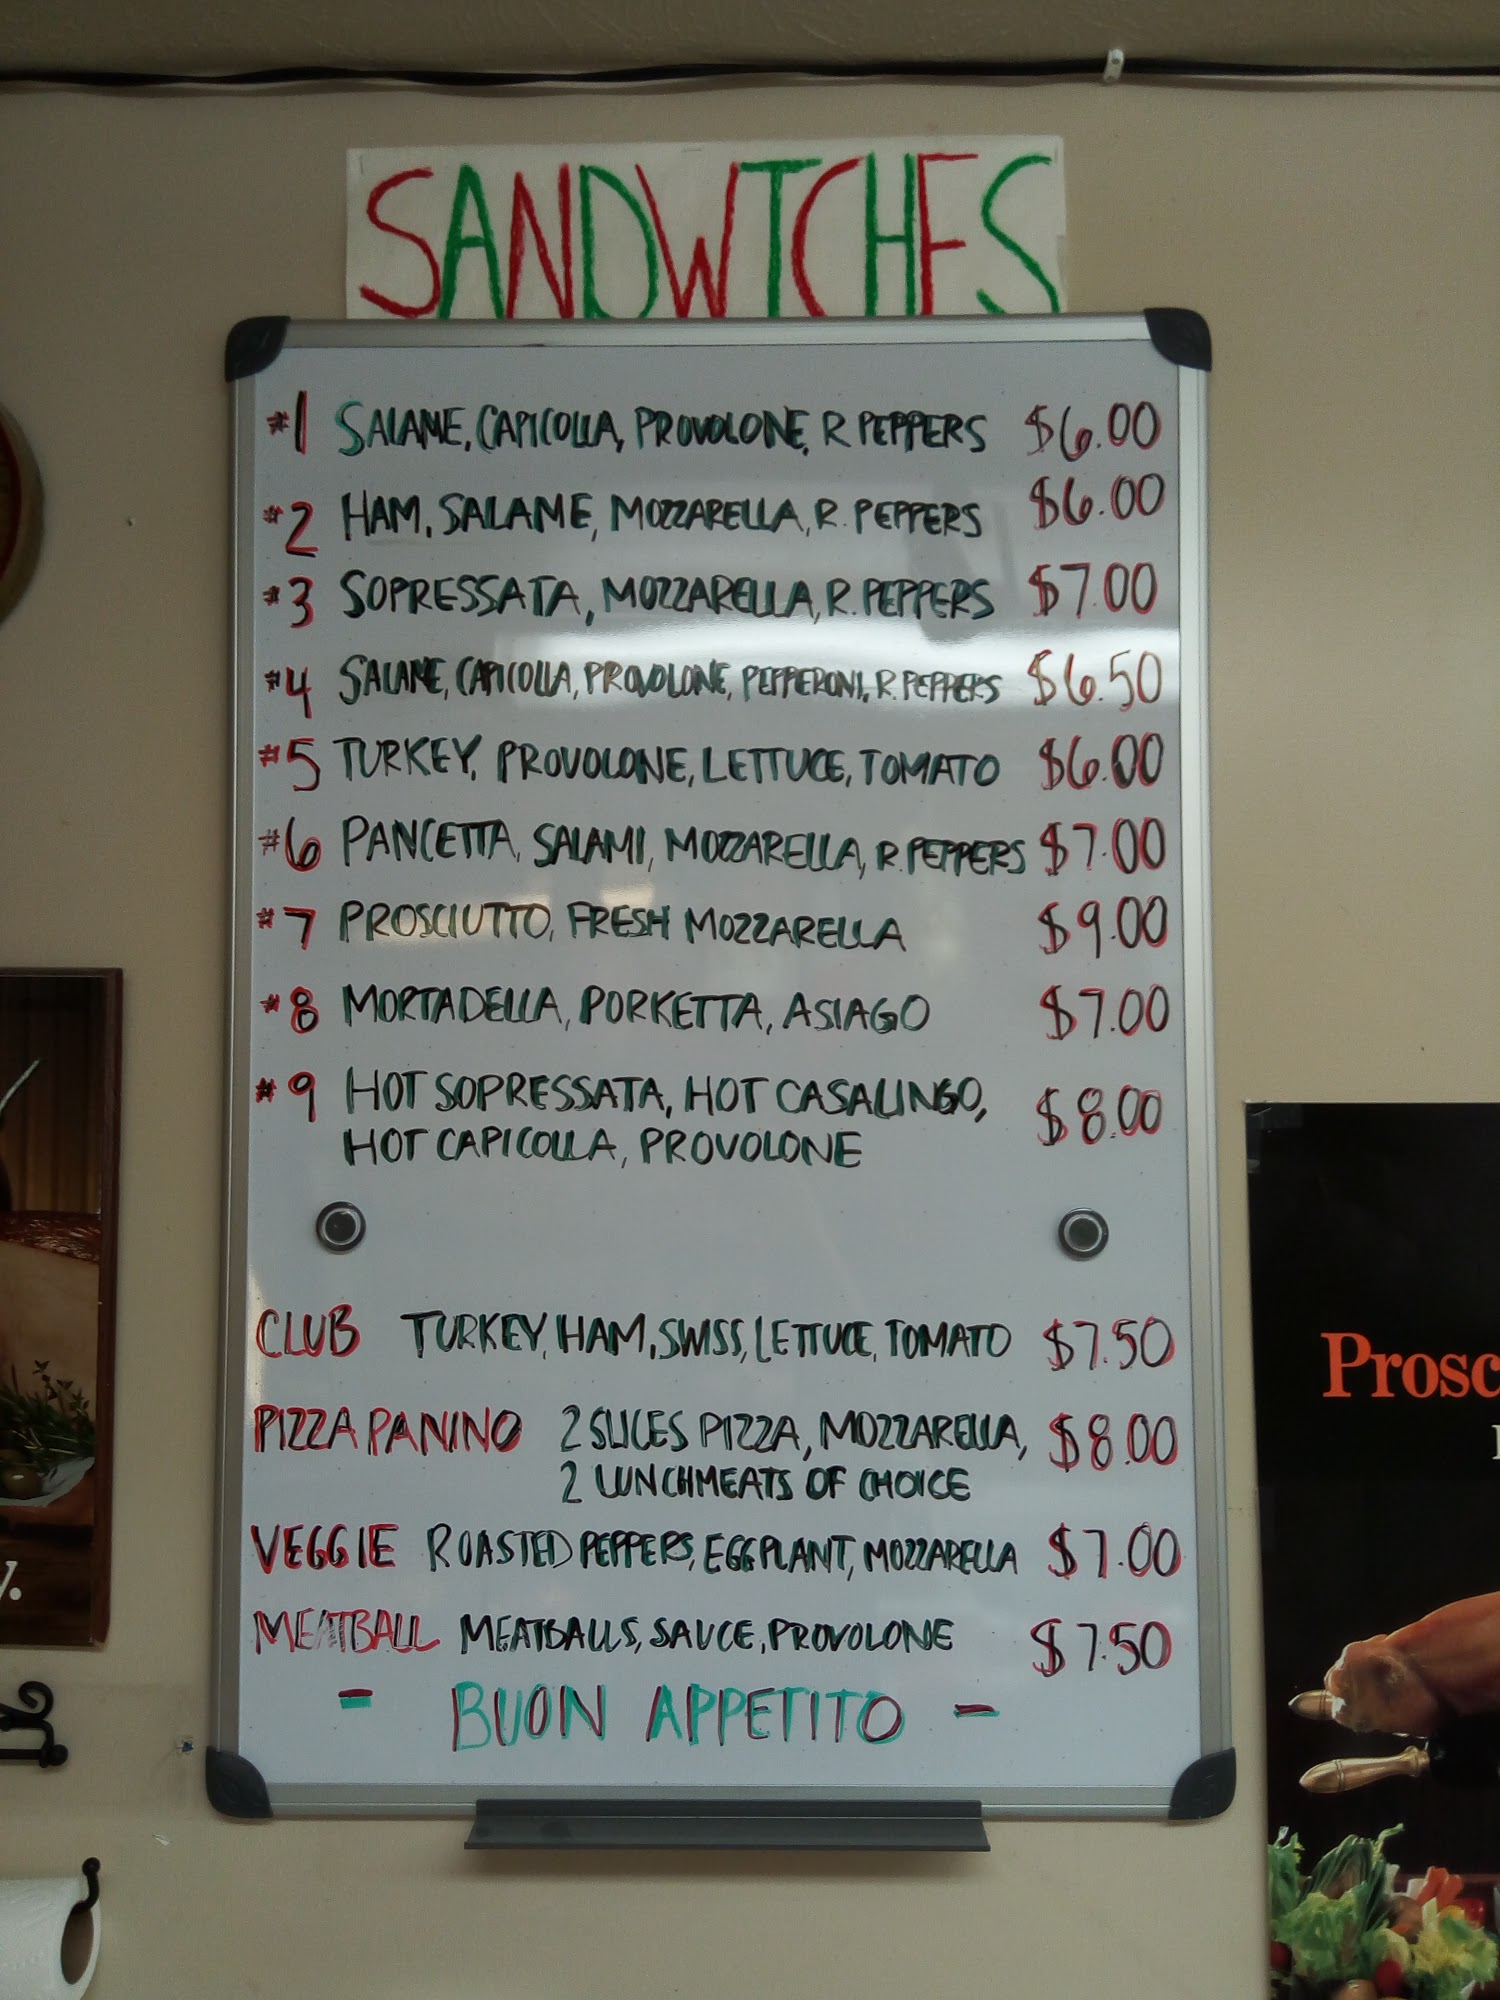 SANDWTCHES
#1 SALAME, CAPICOLLA, PROVOLONE, R PEPPERS $6.00
#2 HAM, SALAME, MOZZARELLA, R. PEPPERS $6.00
#3 SOPRESSATA, MOZZARELLA, R. PEPPERS $7.00
#4 SALAME, CAPICOLLA, PROVOLONE, PEPPERONI, R. PEPPERS $6.50
#5 TURKEY, PROVOLONE, LETTUCE, TOMATO $6.00
#6 PANCETTA, SALAMI, MOZZARELLA, R. PEPPERS $7.00
#7 PROSCIUTTO, FRESH MOZZARELLA $9.00
#8 MORTADELLA, PORKETTA, ASIAGO $7.00
#9 HOT SOPRESSATA, HOT CASALINGO, $8.00
HOT CAPICOLLA, PROVOLONE
CLUB TURKEY, HAM, SWISS, LETTUCE, TOMATO $7.50
PIZZA PANINO 2 SLICES PIZZA, MOZZARELLA, $8.00
2 LUNCHMEATS OF CHOICE
VEGGIE ROASTED PEPPERS, EGGPLANT, MOZZARELLA $7.00
MEATBALL MEATBALLS, SAUCE, PROVOLONE $7.50
- BUON APPETITO -
Prosc
y.